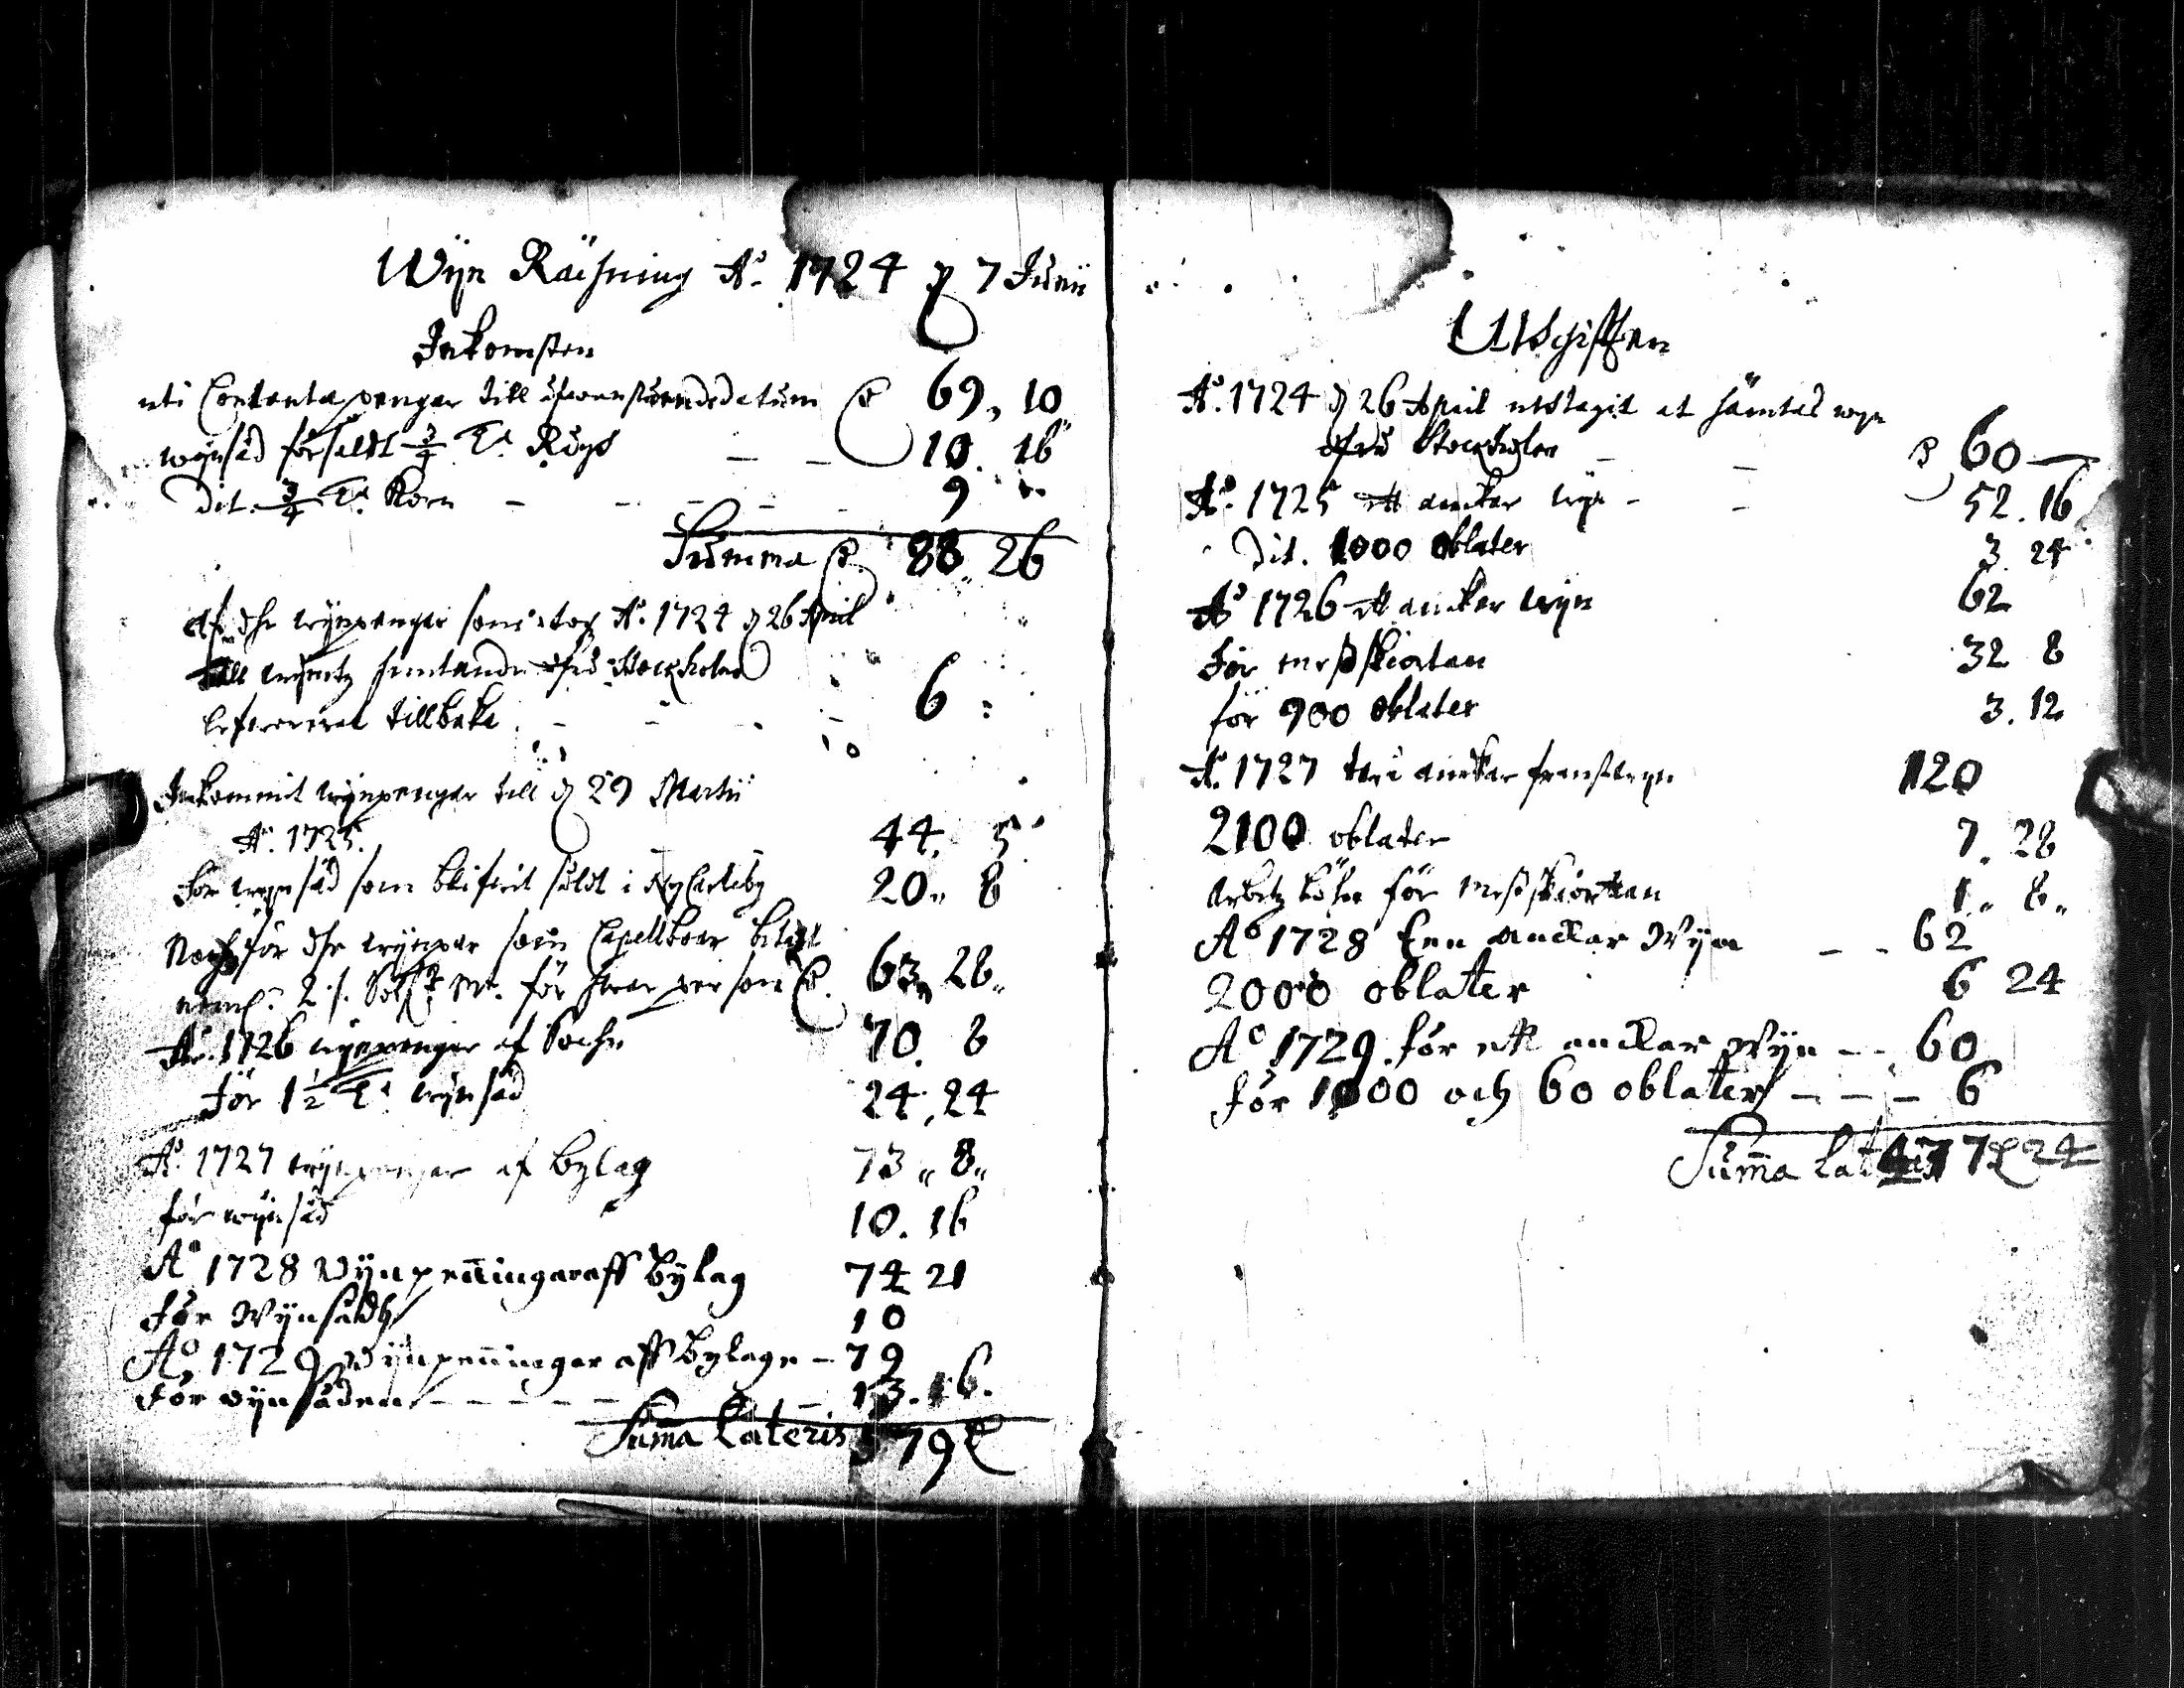 Wijn Räkning Aº 1724 d 7 Junii
Inkomsten
uti Contanta pengar till ofwanstående datum 69, 10
wijnsäd försåldt 3/4 T:r Rågh 10. 16
Dit. 3/4 T:r Korn 9
Summa 88. 26
af dhe wijnpengar som tog Aº 1724 d 26 April
till wijnetz hemtande ifrå Stockholm
lefwererat tillbaka 6
Inkommit wijnpengar till d 29 Martii
Aº 1725. 44. 5
För wijnsäd som blifwit såldt i Ny Carleby 20,, 8
Noch för dhe wijnpar som Capellboar betalt
neml. 2 s. för hwar person 63,, 28,,
Aº 1726 wijnpengar af Sochn 70. 8
För 1 1/2 T:r wijnsäd 24,24
Aº 1727 wijnpengar af bylag 73,, 8,,
för wijnsäd 10. 16
Aº 1728 Wijnpeñingar aff Bylag 74 21
För Wijnsädh 10
Aº 1729 Wijnpenningar aff Bylage - 79
För wijnsäden 13.16.
Suma Lateris 579
Utgifften
Aº 1724 d 26 April uttagit at hämta wijn
ifrå Stockholm 60
Aº 1725 ett anckar wijn 52. 16
Dit. 1000 oblater 3. 24
Aº 1726 ett ancker wijn 62
För messkiortan 32 8
för 900 oblater 3. 12
Aº 1727 två anckar franst wijn 120
2100 oblater 7. 28
för messkiortan 1,, 8,,
Aº 1728 Een anckar Wijn 62
2000 oblater 6 24
Aº 1729. för ett anckar Wijn -- 60
För 1000 och 60 oblater --- 6
Suma Lateris 477 24